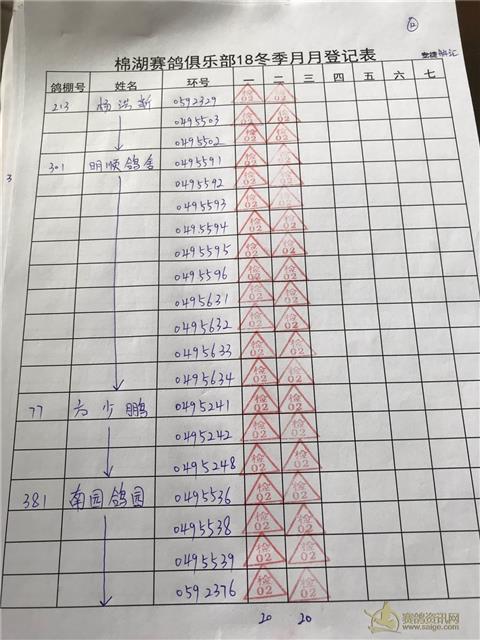 12
棉湖赛鸽俱乐部18冬季月月登记表
鸽棚号 姓名 环号 一 二 三 四 五 六 七
213 杨洪新 0592329 检02 检02
0495503 检02 检02
0495502 检02 检02
301 明顺鸽舍 0495591 检02 检02
3 0495592 检02 检02
0495593 检02 检02
0495594 检02 检02
0495595 检02 检02
0495596 检02 检02
0495631 检02 检02
0495632 检02 检02
0495633 检02 检02
0495634 检02 检02
77 方少鹏 0495241 检02 检02
0495242 检02 检02
0495248 检02 检02
381 南园鸽园 0495536 检02 检02
0495538 检02 检02
0495539 检02 检02
0592376 检02 检02
20 20
赛鸽资讯网
www.saige.com